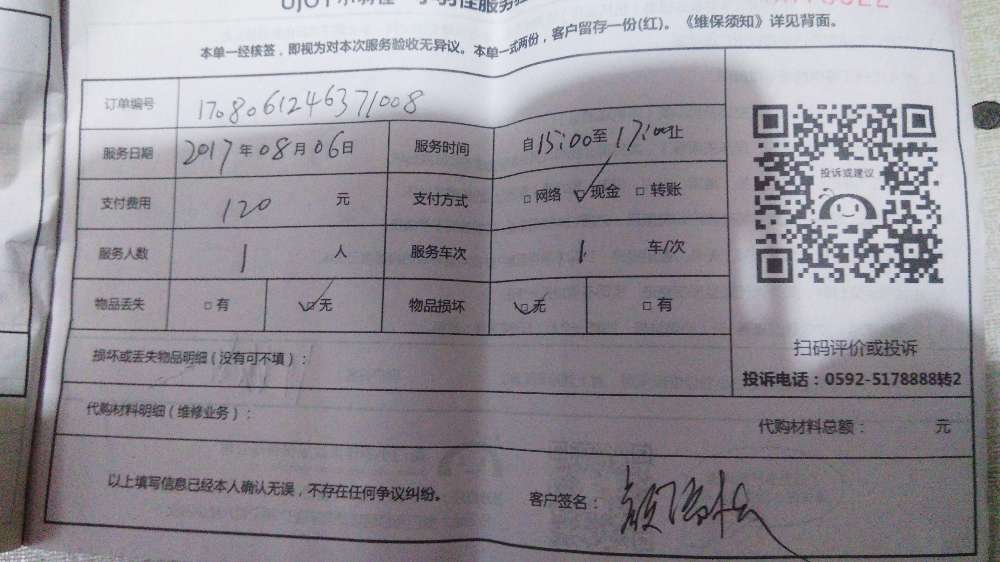 本单一经核签，即视为对本次服务验收无异议。本单一式两份，客户留存一份(红)。《维保须知》详见背面。
订单编号 1708061246371008
服务日期 2017年08月06日 服务时间 自15:00至17:00止
支付费用 120 元 支付方式 □网络 □现金 □转账
服务人数 1 人 服务车次 1 车/次
物品丢失 □有 □无 物品损坏 □无 □有
损坏或丢失物品明细（没有可不填）：
代购材料明细（维修业务）：
代购材料总额： 元
以上填写信息已经本人确认无误，不存在任何争议纠纷。
客户签名：
投诉或建议
扫码评价或投诉
投诉电话：0592-5178888转2